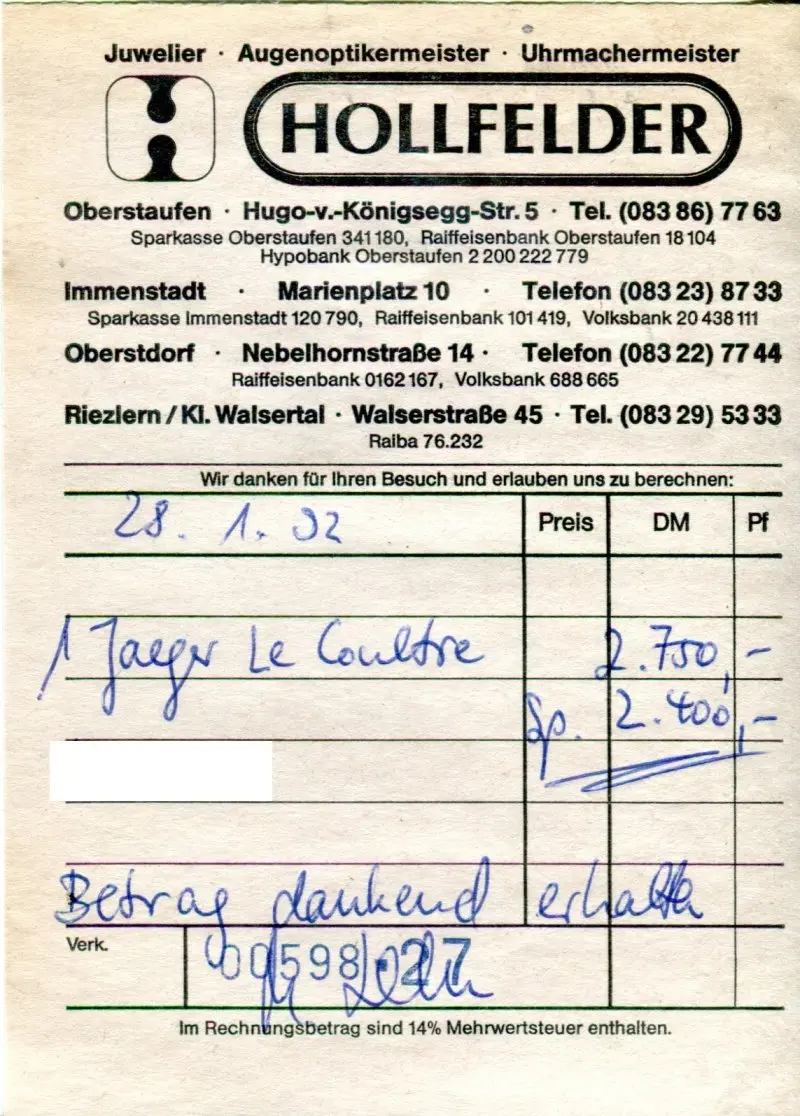 Juwelier · Augenoptikermeister · Uhrmachermeister
HOLLFELDER
Oberstaufen · Hugo-v.-Königsegg-Str. 5 · Tel. (083 86) 77 63
Sparkasse Oberstaufen 341 180, Raiffeisenbank Oberstaufen 18 104
Hypobank Oberstaufen 2 200 222 779
Immenstadt · Marienplatz 10 · Telefon (083 23) 87 33
Sparkasse Immenstadt 120 790, Raiffeisenbank 101 419, Volksbank 20 438 111
Oberstdorf · Nebelhornstraße 14 · Telefon (083 22) 77 44
Raiffeisenbank 0162 167, Volksbank 688 665
Riezlern / Kl. Walsertal · Walserstraße 45 · Tel. (083 29) 53 33
Raiba 76.232
Wir danken für Ihren Besuch und erlauben uns zu berechnen:
28. 1. 92 Preis DM Pf
1 Jaeger Le Coultre 2.750,-
Sp. 2.400,-
Betrag dankend erhalten
Verk. 00598 27
Im Rechnungsbetrag sind 14% Mehrwertsteuer enthalten.